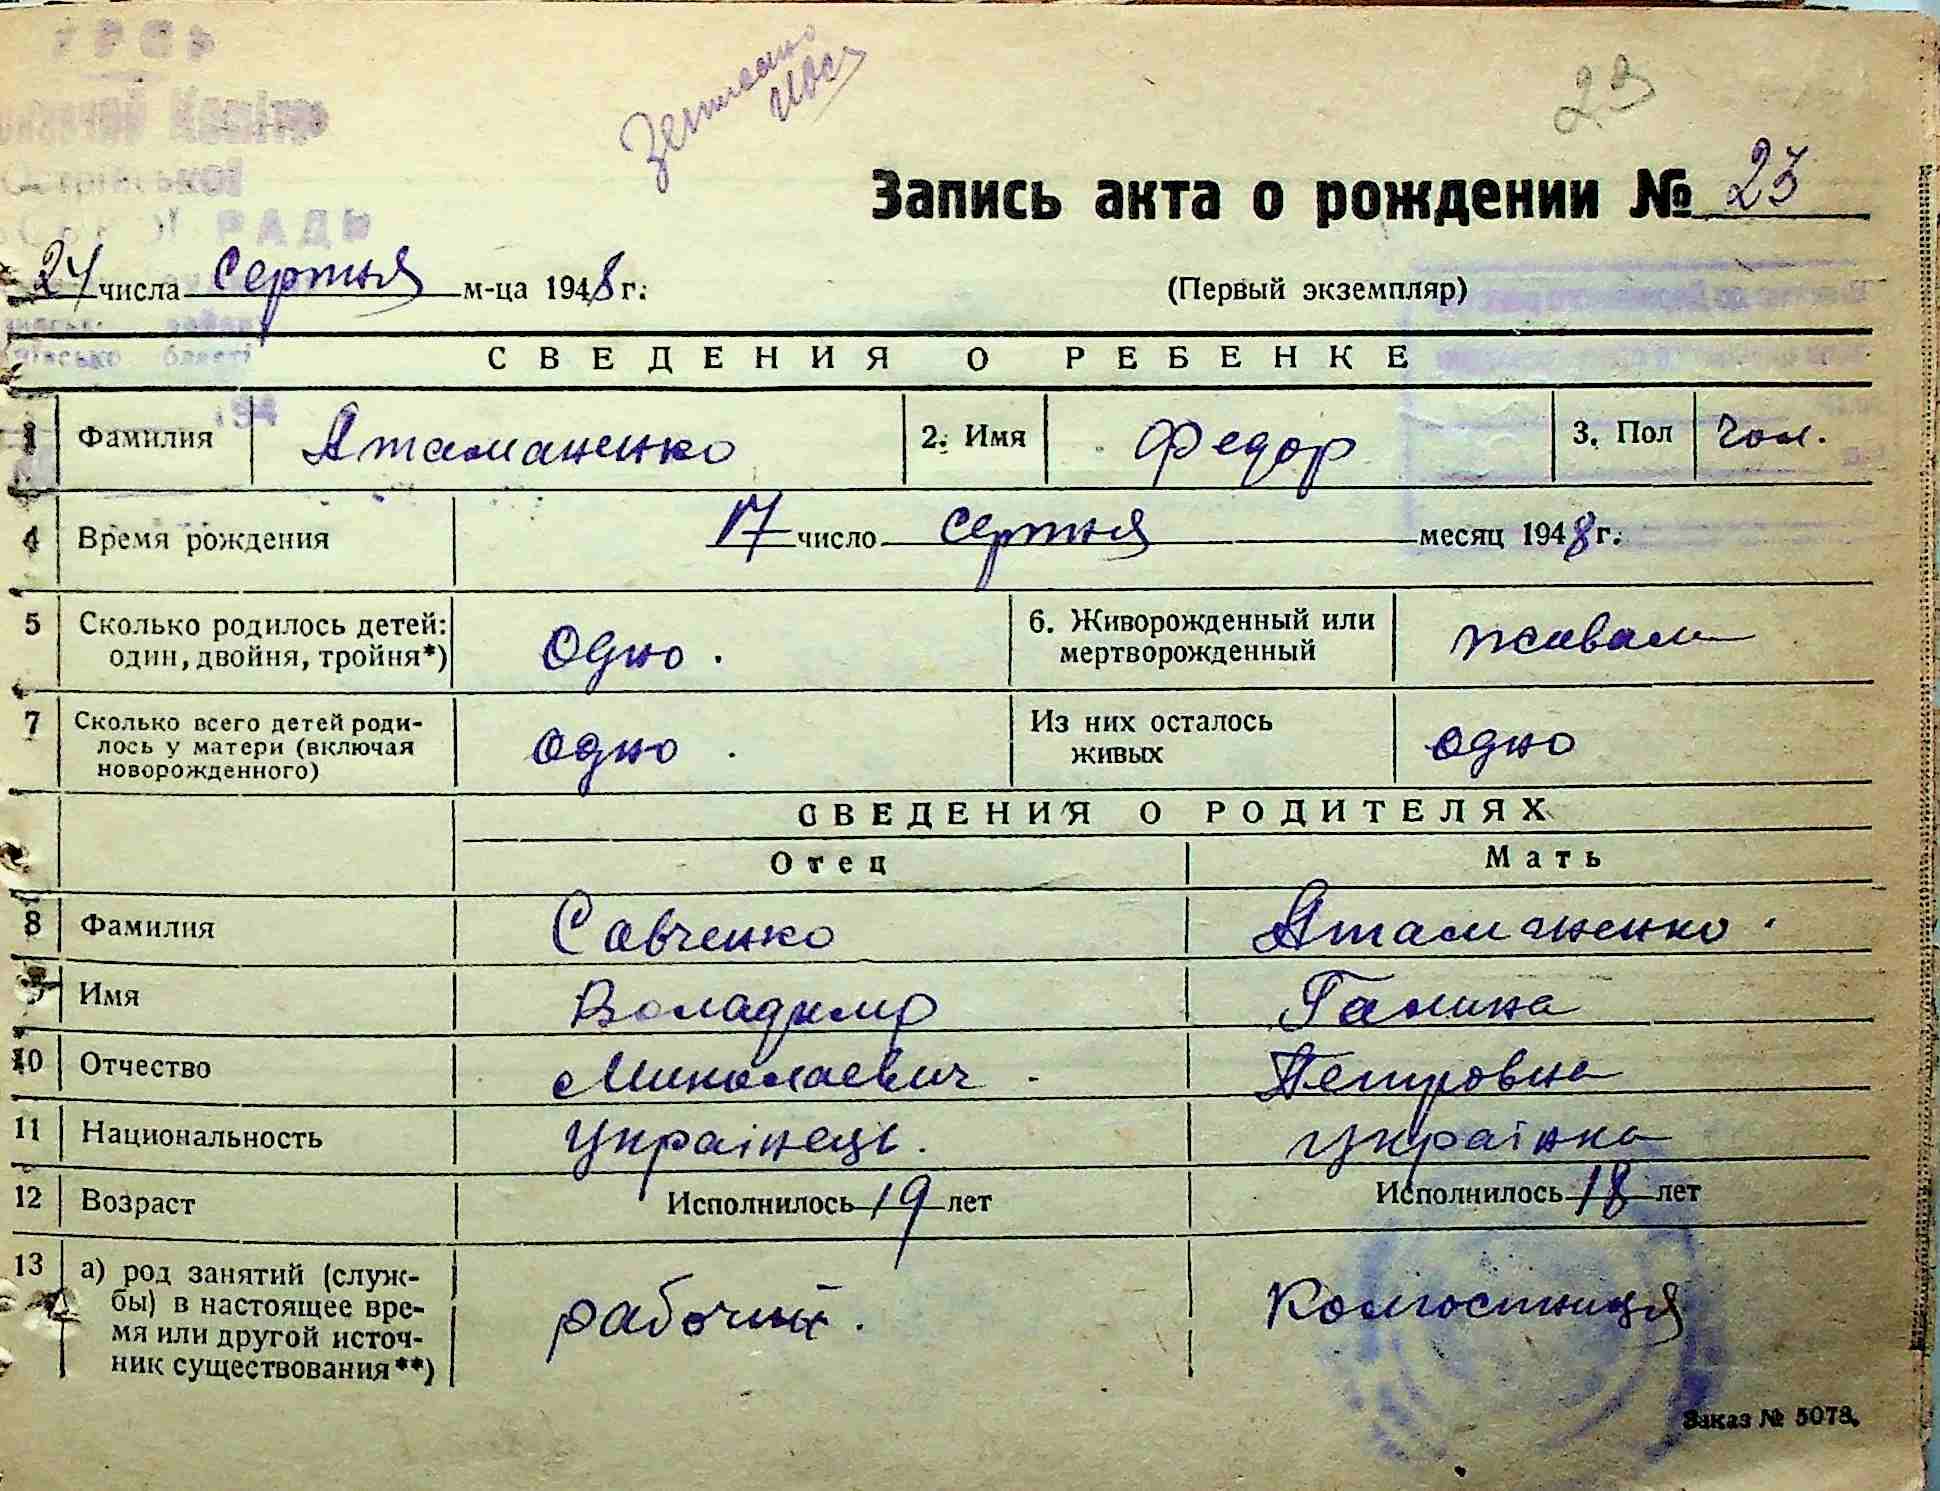 23
Запись акта о рождении № 23
24 числа серпня м-ца 1948 г.
(Первый экземпляр)
РАДИ
СВЕДЕНИЯ О РЕБЕНКЕ
1 Фамилия Атаманенко 2. Имя Федор 3. Пол чол.
4 Время рождения 17 число серпня месяц 1948 г.
5 Сколько родилось детей: один, двойня, тройня*) Одно. 6. Живорожденный или
мертворожденный
7 Сколько всего детей роди-
лось у матери (включая
новорожденного) одно. Из них осталось
живых одно
СВЕДЕНИЯ О РОДИТЕЛЯХ
Отец Мать
8 Фамилия Савченко Атаманенко.
9 Имя Воладимир Галина
10 Отчество Миколаевич. Петровна
11 Национальность Українець. українка
12 Возраст Исполнилось 19 лет Исполнилось 18 лет
13 а) род занятий (служ-
бы) в настоящее вре-
мя или другой источ-
ник существования**) рабочий. Колгостниця
Заказ № 5073.